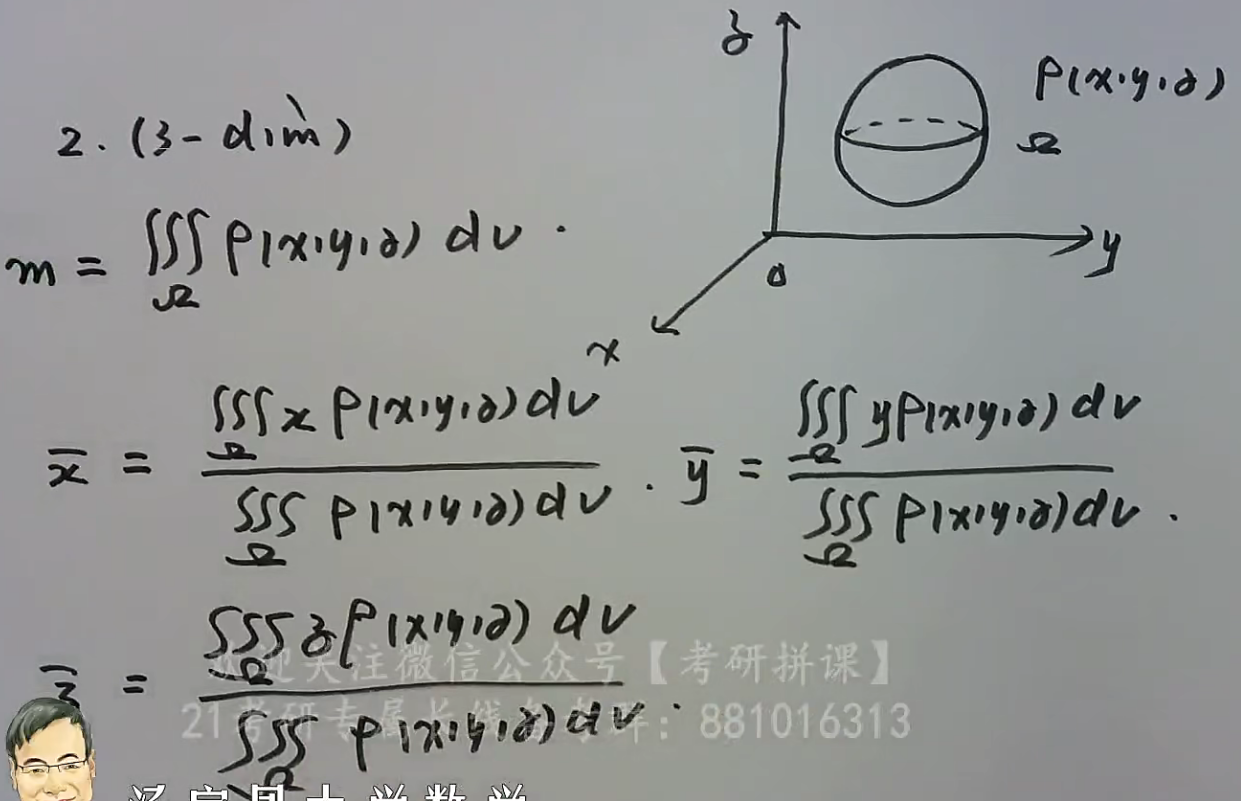 z
ρ(x,y,z)
2. (3-dim)
Ω
m = ∭_Ω ρ(x,y,z) dv.
y
0
x
x̄ = ∭_Ω x ρ(x,y,z) dv / ∭_Ω ρ(x,y,z) dv . ȳ = ∭_Ω y ρ(x,y,z) dv / ∭_Ω ρ(x,y,z) dv .
z̄ = ∭_Ω z ρ(x,y,z) dv / ∭_Ω ρ(x,y,z) dv .
欢迎关注微信公众号【考研拼课】
21考研专属长线备考群：881016313
汤家凤大学数学